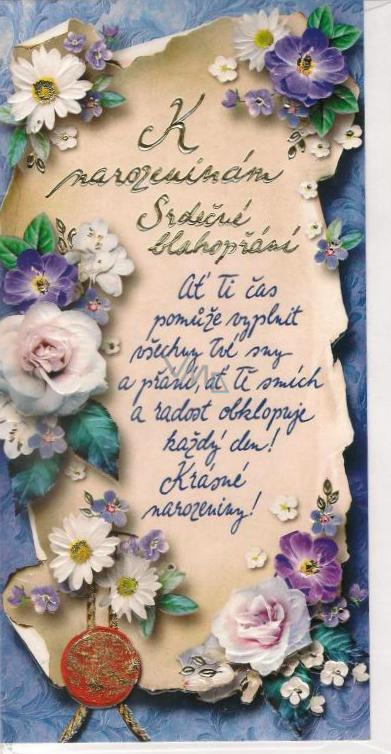 K
narozeninám
Srdečné
blahopřání
Ať Ti čas
pomůže vyplnit
všechny Tvé sny
a přání, ať Tě smích
a radost obklopuje
každý den!
Krásné
narozeniny!